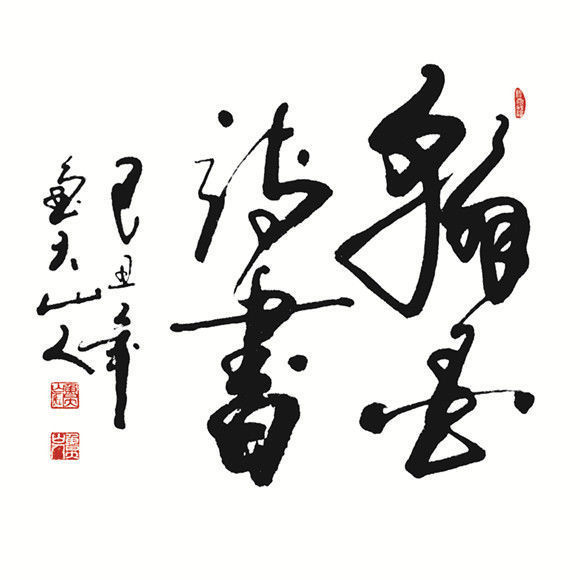 翰墨
詩書
己丑年
山人